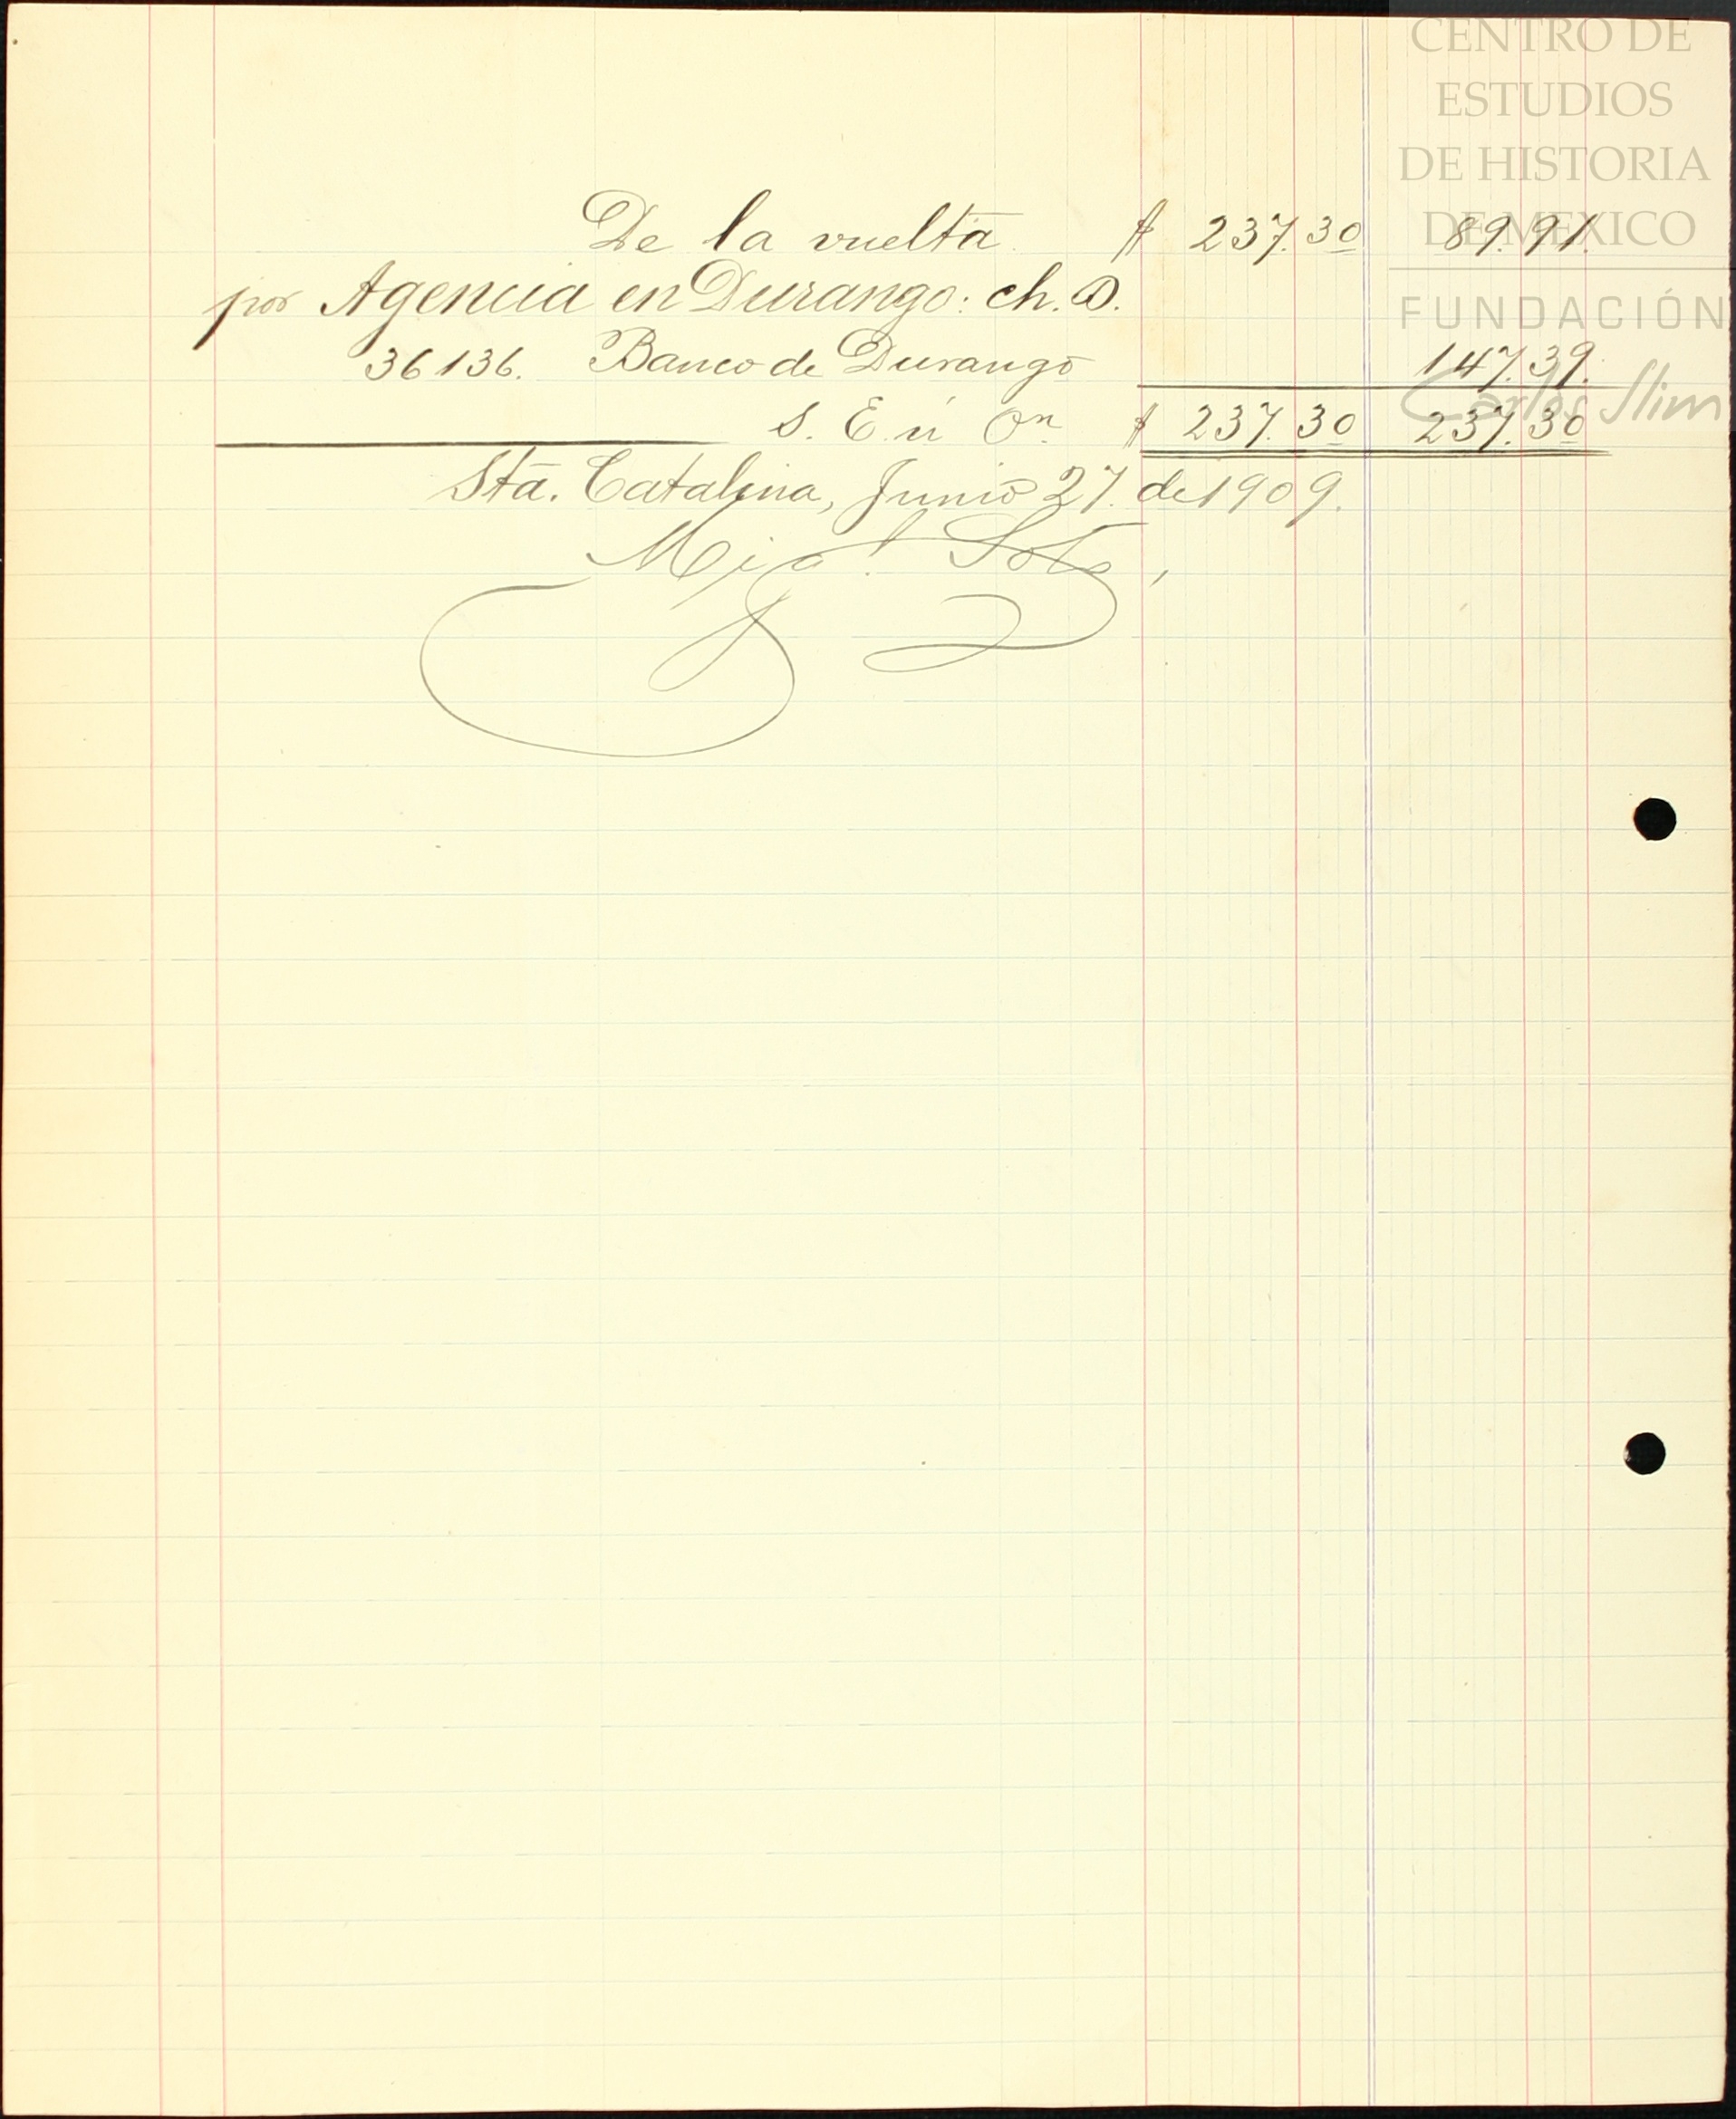 CENTRO DE
ESTUDIOS
DE HISTORIA
DE MEXICO
FUNDACIÓN
Carlos Slim
De la vuelta $ 237.30 89.91.
por Agencia en Durango: ch. D.
36136. Banco de Durango 147.39.
S. E. ú On $ 237.30 237.30
Sta. Catalina, Junio 27. de 1909.
Migl. Soto,